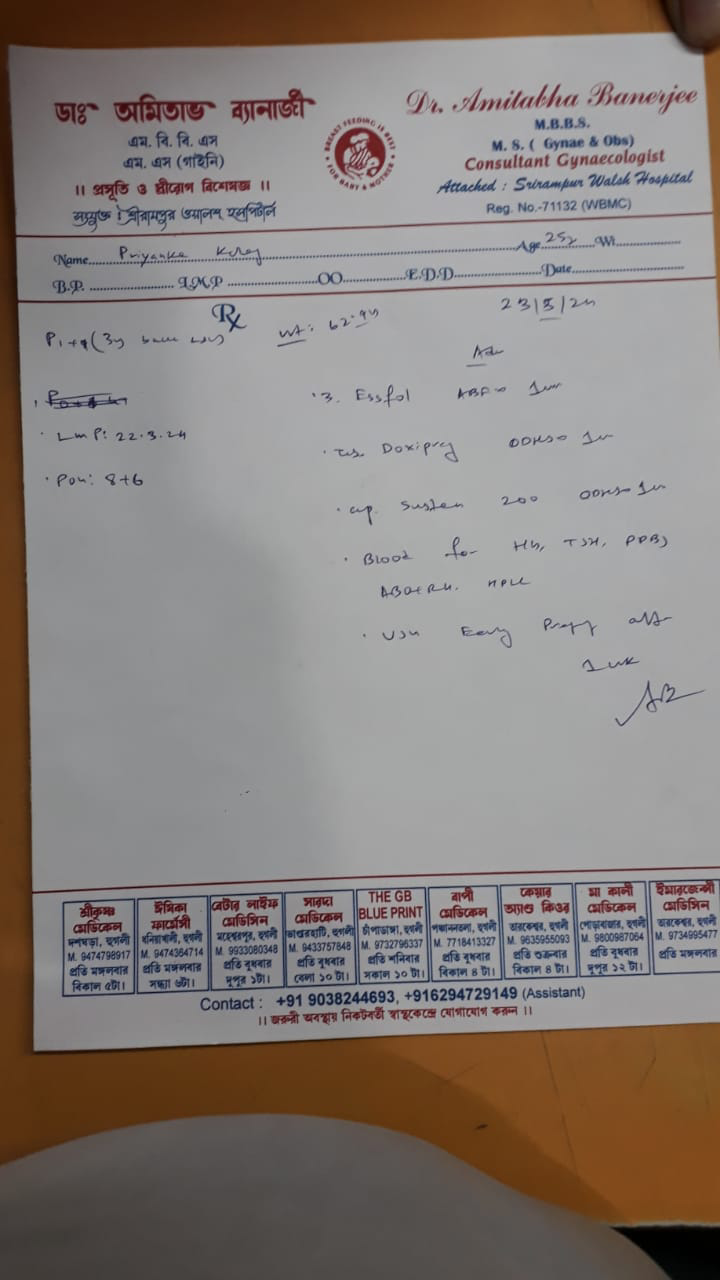 ডাঃ অমিতাভ ব্যানার্জী
এম. বি. বি. এস
এম. এস (গাইনি)
॥ প্রসূতি ও স্ত্রীরোগ বিশেষজ্ঞ ॥
সংযুক্ত : শ্রীরামপুর ওয়ালশ হসপিটাল
BREAST FEEDING IS BEST
FOR BABY & MOTHER
Dr. Amitabha Banerjee
M.B.B.S.
M. S. ( Gynae & Obs)
Consultant Gynaecologist
Attached : Srirampur Walsh Hospital
Reg. No.-71132 (WBMC)
Name Priyanka Age 25y Wt.
B.P. L.M.P OO E.D.D Date
Rx
Wt: 62.9
23/5/24
Adv
Essfol
LMP: 22.3.24
Doxipreg
POG: 8+6
Cap. Susten 200
Blood for Hb, TSH, PPBS
ABO+Rh. HPLC
USG Early Pregy after
1 wk
AB
শ্রীকৃষ্ণ
মেডিকেল
দশঘড়া, হুগলী
M. 9474798917
প্রতি মঙ্গলবার
বিকাল ৫টা।
ঈসিকা
ফার্মেসী
ধনিয়াখালী, হুগলী
M. 9474364714
প্রতি মঙ্গলবার
সন্ধ্যা ৬টা।
বেটার লাইফ
মেডিসিন
মহেশ্বরপুর, হুগলী
M. 9933080348
প্রতি বুধবার
দুপুর ১টা।
সারদা
মেডিকেল
ভাণ্ডারহাটি, হুগলী
M. 9433757848
প্রতি বুধবার
বেলা ১০ টা।
THE GB
BLUE PRINT
চাঁপাডাঙ্গা, হুগলী
M. 9732796337
প্রতি শনিবার
সকাল ১০ টা।
বাপী
মেডিকেল
পঞ্চাননতলা, হুগলী
M. 7718413327
প্রতি বুধবার
বিকাল ৪ টা।
কেয়ার
অ্যান্ড কিওর
তারকেশ্বর, হুগলী
M. 9635955093
প্রতি শুক্রবার
বিকাল ৪ টা।
মা কালী
মেডিকেল
পোড়াবাজার, হুগলী
M. 9800987064
প্রতি বুধবার
দুপুর ১২ টা।
ইমারজেন্সী
মেডিসিন
তারকেশ্বর, হুগলী
M. 9734995477
প্রতি মঙ্গলবার
Contact : +91 9038244693, +916294729149 (Assistant)
॥ জরুরী অবস্থায় নিকটবর্তী স্বাস্থ্যকেন্দ্রে যোগাযোগ করুন ॥